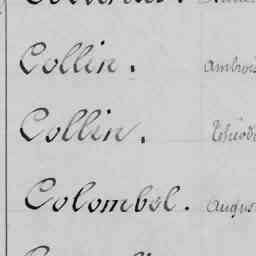 Collin. Ambrois
Collin. Théod
Colombel. Augus